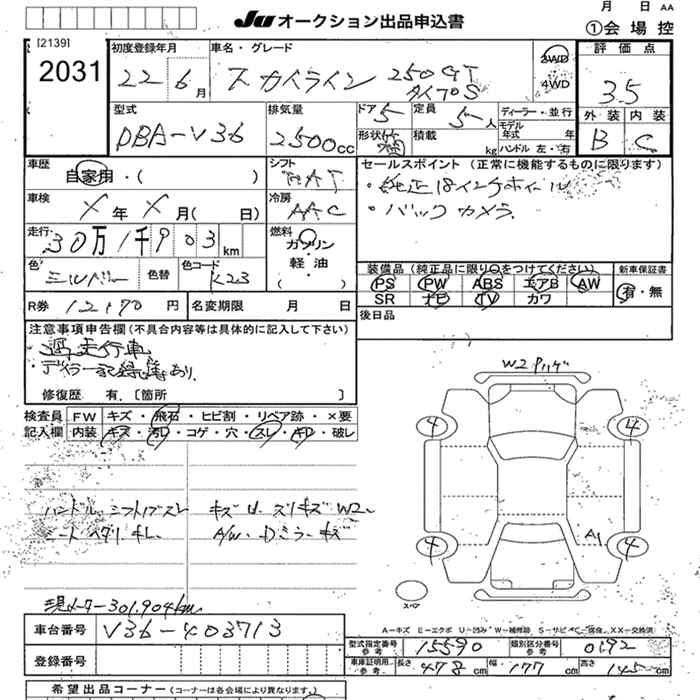 月 日 AA
JU オークション出品申込書
①会場控
[2139]
2031
初度登録年月
22 6月
車名・グレード
スカイライン 250GT
タイプS
2WD
4WD
評価点
3.5
外装 内装
B C
型式
DBA-V36
排気量
2500cc
ドア 5
形状
定員 5人
積載 kg
ディーラー・並行
モデル年式 年
ハンドル 左・右
車歴
自家用・( )
シフト
AT
セールスポイント (正常に機能するものに限ります)
・純正18インチホイール
・バックカメラ
車検
X年 X月( 日)
冷房
AAC
走行
30万1千903km
燃料
ガソリン
軽・油
( )
色
シルバー
色替
色コード
K23
装備品 (純正品に限り○をつけてください)
PS PW ABS エアB AW
SR ナビ TV カワ
新車保証書
有・無
R券 12170円
名変期限 月 日
後日品
注意事項申告欄 (不具合内容等は具体的に記入して下さい)
過走行車
・ディーラー記録簿あり。
修復歴 有.〔箇所 〕
検査員記入欄
FW キズ・飛石・ヒビ割・リペア跡・×要
内装 キズ・汚レ・コゲ・穴・スレ・キレ・破レ
ハンドル シフトノブスレ キズ U スリキズ W2
シート ヘタリ キレ A/W・Dミラーキズ
現メーター301,904km
W2
4 4
4 4
A1
スペア
A-キズ E-エクボ U-凹み W-補修跡 S-サビ C-腐食 XX-交換済
車台番号 V36-403713
登録番号
型式指定番号 参考 15590
類別区分番号 参考 0192
車庫証明用 参考 長さ 478cm 幅 177cm 高さ 145cm
希望出品コーナー (コーナーは各会場により異なります)